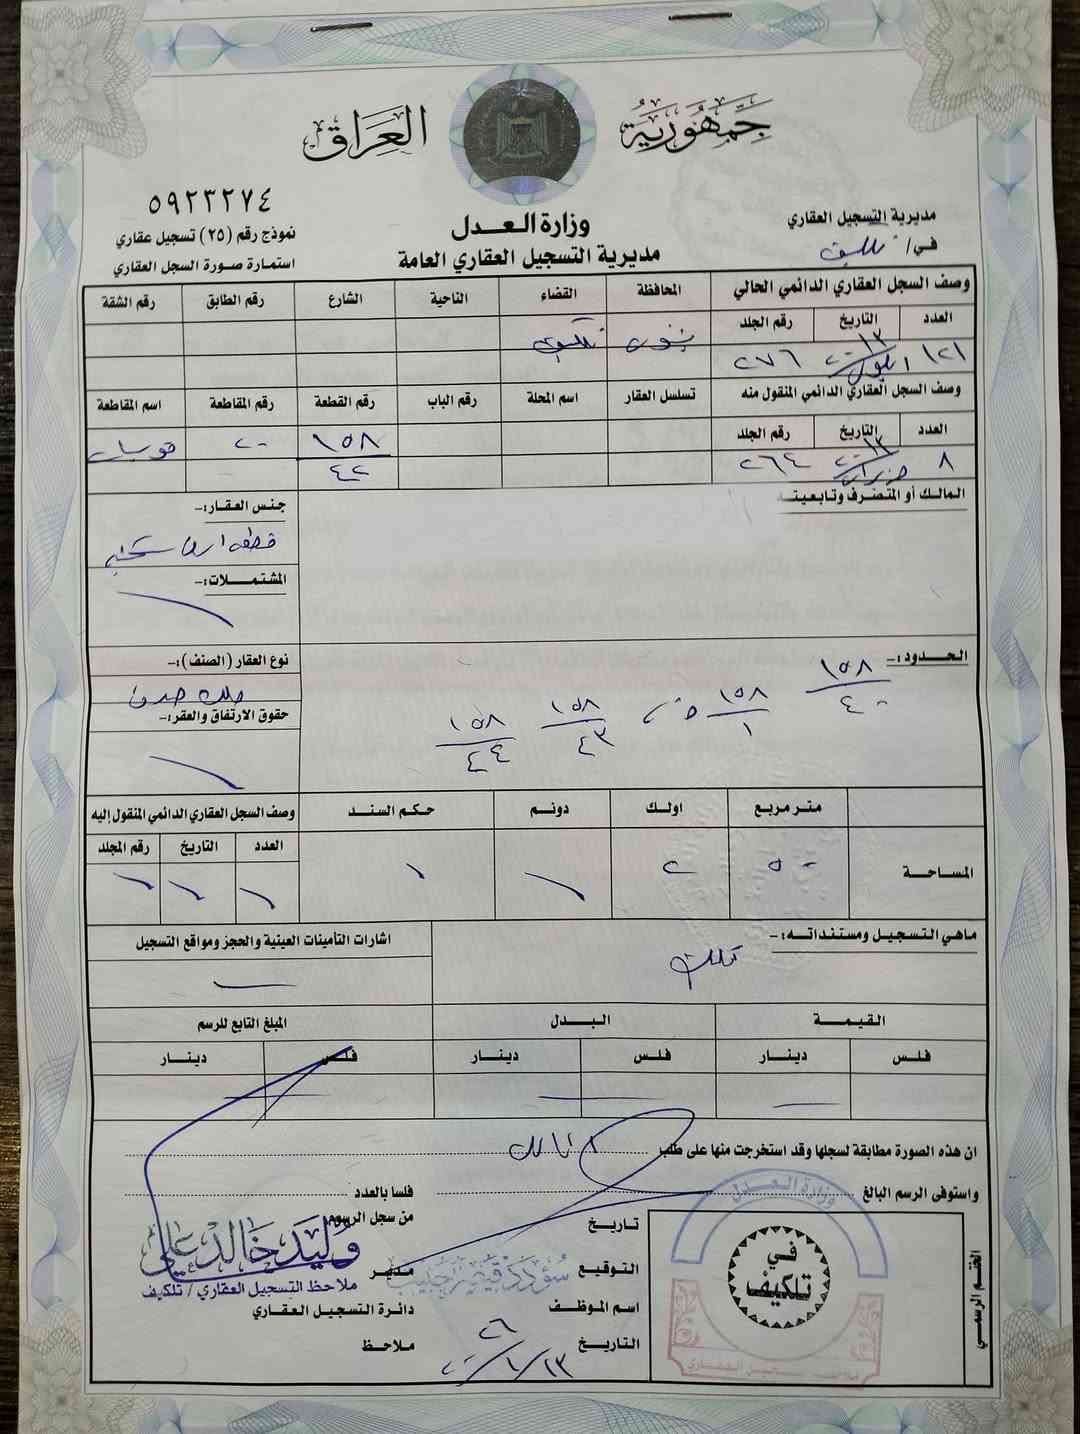 جمهورية العراق
٥٩٢٣٢٧٤
مديرية التسجيل العقاري
في/ تلكيف
وزارة العدل
مديرية التسجيل العقاري العامة
نموذج رقم (٢٥) تسجيل عقاري
استمارة صورة السجل العقاري
وصف السجل العقاري الدائمي الحالي المحافظة القضاء الناحية الشارع رقم الطابق رقم الشقة
العدد التاريخ رقم الجلد
١٢١ ايلول ٢٠١٣ ٢٧٦ نينوى تلكيف
وصف السجل العقاري الدائمي المنقول منه تسلسل العقار اسم المحلة رقم الباب رقم القطعة رقم المقاطعة اسم المقاطعة
العدد التاريخ رقم الجلد
٨ حزيران ٢٠١٣ ٢٦٤ ١٥٨/٤٢ ٢٠
المالك أو المتصرف وتابعيته
جنس العقار:-
قطعة ارض
المشتملات:-
الحدود:-
١٥٨/٤٠ ١٥٨/١ ١٥٨/٤٣ ١٥٨/٤٤
نوع العقار (الصنف):-
ملك صرف
حقوق الارتفاق والعقر:-
متر مربع اولك دونم حكم السند وصف السجل العقاري الدائمي المنقول إليه
العدد التاريخ رقم المجلد
المساحة ٥٠ ٢
ماهي التسجيل ومستنداته:-
تملك
اشارات التأمينات العينية والحجز ومواقع التسجيل
القيمة البدل المبلغ التابع للرسم
فلس دينار فلس دينار فلس دينار
ان هذه الصورة مطابقة لسجلها وقد استخرجت منها على طلب المالك
واستوفى الرسم البالغ فلسا بالعدد
تاريخ من سجل الرسوم
التوقيع مدير
اسم الموظف دائرة التسجيل العقاري
التاريخ ٢٠٢٦/١/١٣ ملاحظ
وليد خالد علي
ملاحظ التسجيل العقاري / تلكيف
الختم الرسمي
وزارة العدل
في
تلكيف